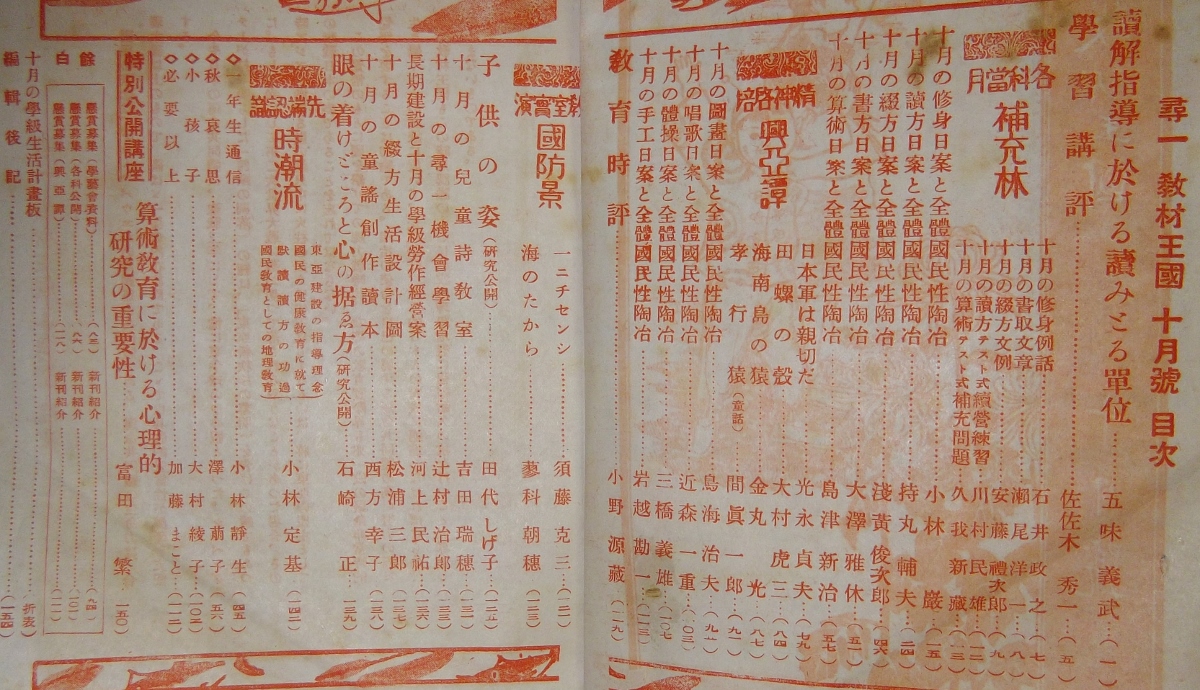 尋一 敎材王國 十月號 目次
讀解指導に於ける讀みとる單位……五味義武…(一)
學習講評……佐佐木秀一…(五)
各科當月 補充林
十月の修身例話……石井政之…(七)
十月の書取文章……瀨尾洋一…(八)
十月の綴方文例……安藤禮次郎…(九)
十月の讀方テスト式續營練習……川村民雄…(一二)
十月の算術テスト式補充問題……久我新藏…(一三)
十月の修身日案と全體國民性陶冶……小林巖…(一五)
十月の讀方日案と全體國民性陶冶……持丸輔夫…(二四)
十月の綴方日案と全體國民性陶冶……淺黃俊次郎…(四六)
十月の書方日案と全體國民性陶冶……大澤雅休…(五一)
十月の算術日案と全體國民性陶冶……島津新治…(五七)
精神啓培 興亞譚
日本軍は親切だ……光永貞夫…(七九)
田螺の殼……大村虎三…(八四)
海南島の猿……金丸光…(八七)
孝行猿(童話)……間眞一郎…(九一)
十月の圖畫日案と全體國民性陶冶……鳥海治夫…(九八)
十月の唱歌日案と全體國民性陶冶……近森一重…(一〇三)
十月の體操日案と全體國民性陶冶……三橋義雄…(一〇七)
十月の手工日案と全體國民性陶冶……岩越勘一…(一一三)
敎育時評……小野源藏…(一一九)
敎室實演 國防景
一ニチセンシ……須藤克三…(一二一)
海のたから……蓼科朝穗…(一二三)
子供の姿(硏究公開)……田代しげ子…(一二五)
十月の兒童詩敎室……吉田瑞穗…(一三一)
十月の尋一機會學習……辻村治郎…(一三三)
長期建設と十月の學級勞作經營案……河上民祐…(一三六)
十月の綴方生活設計圖……松浦三郎…(一三七)
十月の童謠創作讀本……西方幸子…(一三八)
眼の着けどころと心の据ゑ方(硏究公開)……石崎正…(一三九)
先端認識 時潮流
東亞建設の指導理念
國民の健康敎育に就て
默讀讀方の功過
國民敎育としての地理敎育
小林定基…(一四二)
◇一年生通信……小林靜生…(四五)
◇秋哀思……澤萠子…(五六)
◇小孩子……大村綾子…(一〇二)
◇必要以上……加藤まこと…(一一二)
特別公開講座
算術敎育に於ける心理的硏究の重要性……富田繁…一五〇)
餘白
懸賞募集(學藝會資料)……(八三) 新刊紹介……(九四)
懸賞募集(各科公開)……(八六) 新刊紹介……(一〇一)
懸賞募集(興亞譚)……(一一八) 新刊紹介……(一一一)
十月の學級生活計畫板……折表
編輯後記……(一五四)